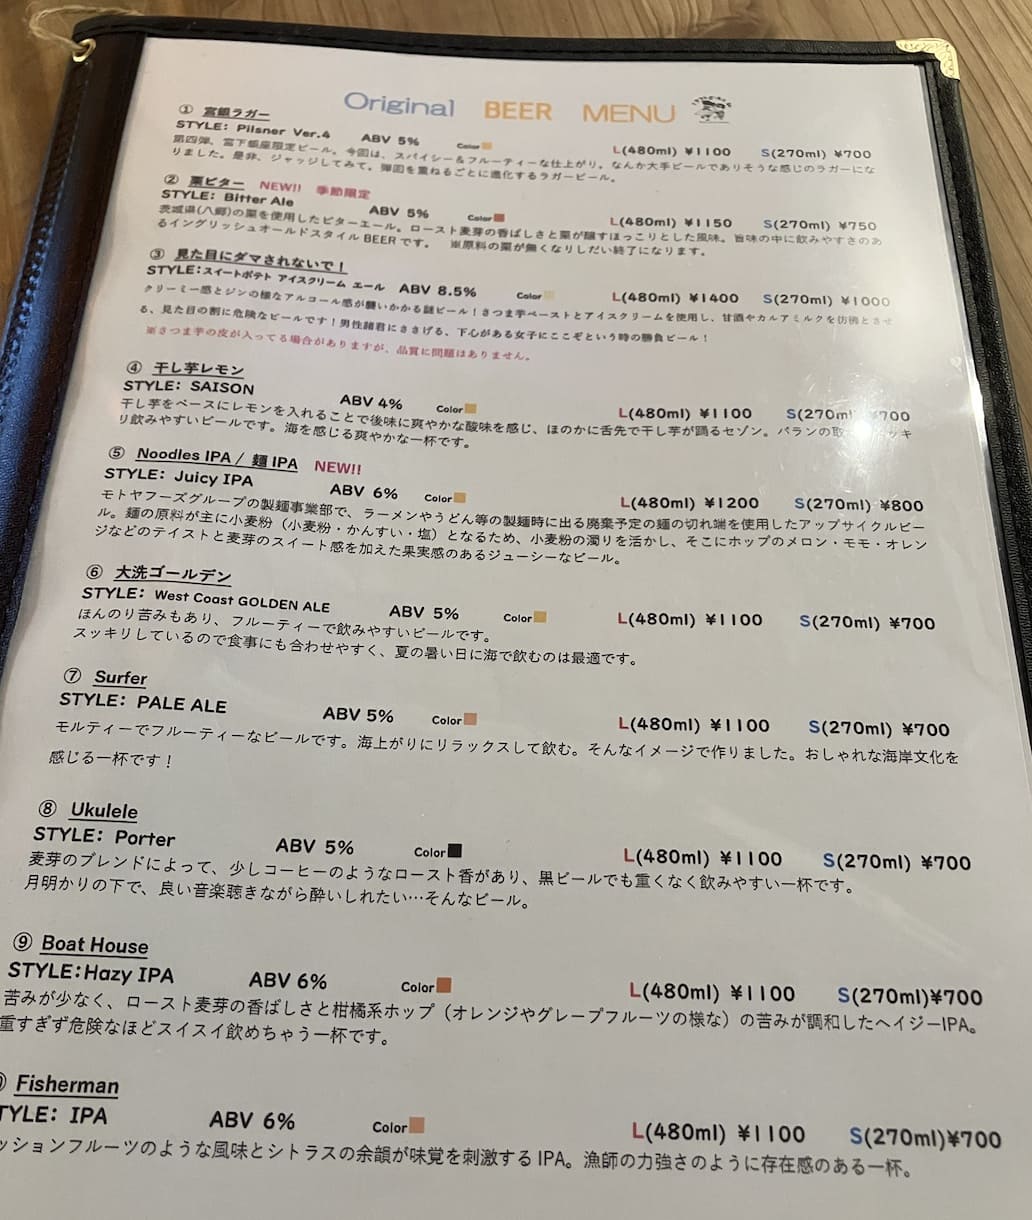 Original BEER MENU
① 宮銀ラガー
STYLE: Pilsner Ver.4 ABV 5% Color L(480ml) ¥1100 S(270ml) ¥700
第四弾、宮下銀座限定ビール。今回は、スパイシー＆フルーティーな仕上がり。なんか大手ビールでありそうな感じのラガーにな
りました。是非、ジャッジしてみて。弾回を重ねるごとに進化するラガービール。
② 栗ビター NEW!! 季節限定
STYLE: Bitter Ale ABV 5% Color L(480ml) ¥1150 S(270ml) ¥750
茨城県(八郷)の栗を使用したビターエール。ロースト麦芽の香ばしさと栗が醸すほっこりとした風味。旨味の中に飲みやすさのあ
るイングリッシュオールドスタイルBEERです。 ※原料の栗が無くなりしだい終了になります。
③ 見た目にダマされないで！
STYLE:スイートポテト アイスクリーム エール ABV 8.5% Color L(480ml) ¥1400 S(270ml) ¥1000
クリーミー感とジンの様なアルコール感が襲いかかる謎ビール！さつま芋ペーストとアイスクリームを使用し、甘酒やカルアミルクを彷彿とさせ
る、見た目の割に危険なビールです！男性諸君にささげる、下心がある女子にここぞという時の勝負ビール！
※さつま芋の皮が入ってる場合がありますが、品質に問題はありません。
④ 干し芋レモン
STYLE: SAISON ABV 4% Color L(480ml) ¥1100 S(270ml) ¥700
干し芋をベースにレモンを入れることで後味に爽やかな酸味を感じ、ほのかに舌先で干し芋が踊るセゾン。バランの取 ッキ
リ飲みやすいビールです。海を感じる爽やかな一杯です。
⑤ Noodles IPA / 麺 IPA NEW!!
STYLE: Juicy IPA ABV 6% Color L(480ml) ¥1200 S(270ml) ¥800
モトヤフーズグループの製麺事業部で、ラーメンやうどん等の製麺時に出る廃棄予定の麺の切れ端を使用したアップサイクルビー
ル。麺の原料が主に小麦粉（小麦粉・かんすい・塩）となるため、小麦粉の濁りを活かし、そこにホップのメロン・モモ・オレン
ジなどのテイストと麦芽のスイート感を加えた果実感のあるジューシーなビール。
⑥ 大洗ゴールデン
STYLE: West Coast GOLDEN ALE ABV 5% Color L(480ml) ¥1100 S(270ml) ¥700
ほんのり苦みもあり、フルーティーで飲みやすいビールです。
スッキリしているので食事にも合わせやすく、夏の暑い日に海で飲むのは最適です。
⑦ Surfer
STYLE: PALE ALE ABV 5% Color L(480ml) ¥1100 S(270ml) ¥700
モルティーでフルーティーなビールです。海上がりにリラックスして飲む。そんなイメージで作りました。おしゃれな海岸文化を
感じる一杯です！
⑧ Ukulele
STYLE: Porter ABV 5% Color L(480ml) ¥1100 S(270ml) ¥700
麦芽のブレンドによって、少しコーヒーのようなロースト香があり、黒ビールでも重くなく飲みやすい一杯です。
月明かりの下で、良い音楽聴きながら酔いしれたい…そんなビール。
⑨ Boat House
STYLE:Hazy IPA ABV 6% Color L(480ml) ¥1100 S(270ml)¥700
苦みが少なく、ロースト麦芽の香ばしさと柑橘系ホップ（オレンジやグレープフルーツの様な）の苦みが調和したヘイジーIPA。
重すぎず危険なほどスイスイ飲めちゃう一杯です。
Fisherman
TYLE: IPA ABV 6% Color L(480ml) ¥1100 S(270ml)¥700
ッションフルーツのような風味とシトラスの余韻が味覚を刺激する IPA。漁師の力強さのように存在感のある一杯。